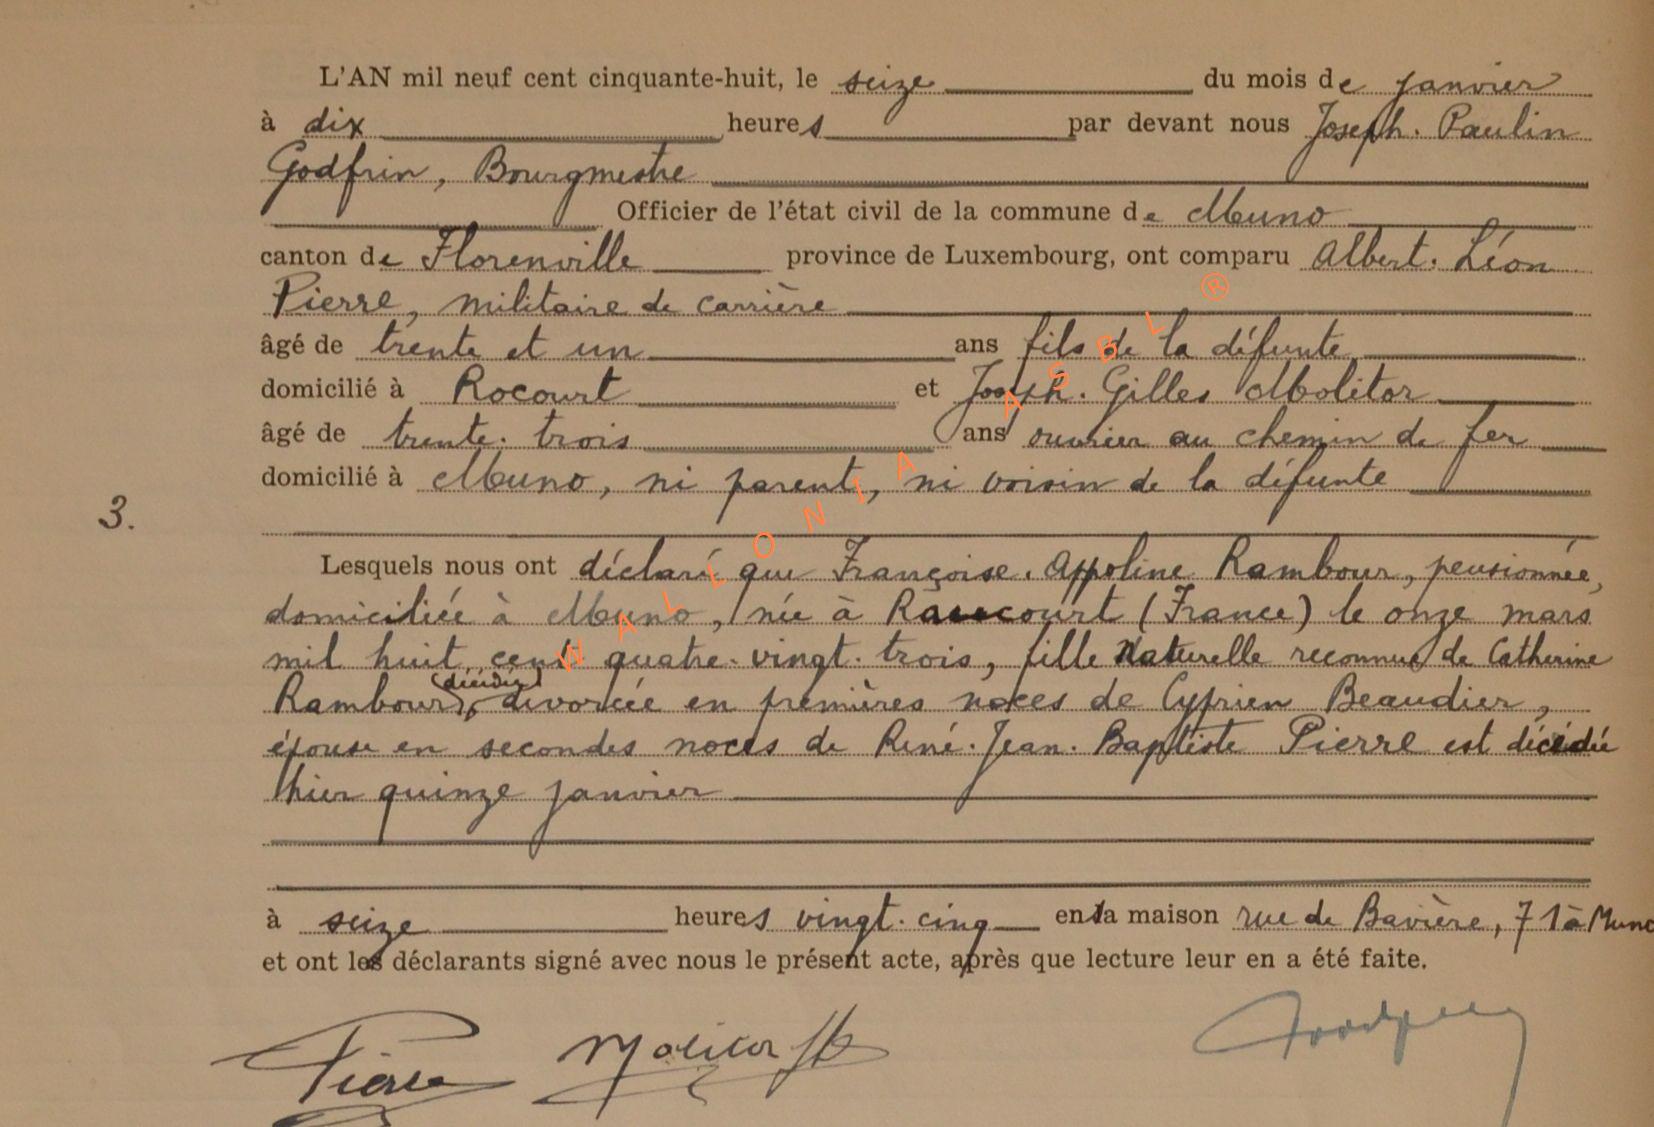 L'AN mil neuf cent cinquante-huit, le seize du mois de janvier
à dix heures par devant nous Joseph. Paulin
Godfrin, Bourgmestre
Officier de l'état civil de la commune de Muno
canton de Florenville province de Luxembourg, ont comparu Albert. Léon
Pierre, militaire de carrière
âgé de trente et un ans fils de la défunte
domicilié à Rocourt et Joseph. Gilles Molitor
âgé de trente. trois ans ouvrier au chemin de fer
domicilié à Muno, ni parent, ni voisin de la défunte
3.
Lesquels nous ont déclaré que Françoise. Appoline Rambour, pensionnée,
domiciliée à Muno, née à Raucourt (France) le onze mars
mil huit cent quatre. vingt. trois, fille Naturelle reconnue de Catherine
Rambour, (décédée) divorcée en premières noces de Cyprien Beaudier,
épouse en secondes noces de René. Jean. Baptiste Pierre est décédée
hier quinze janvier
à seize heures vingt. cinq en la maison rue de Bavière, 71 à Muno
et ont les déclarants signé avec nous le présent acte, après que lecture leur en a été faite.
Pierre Molitor
WALLONIA ASBL ®